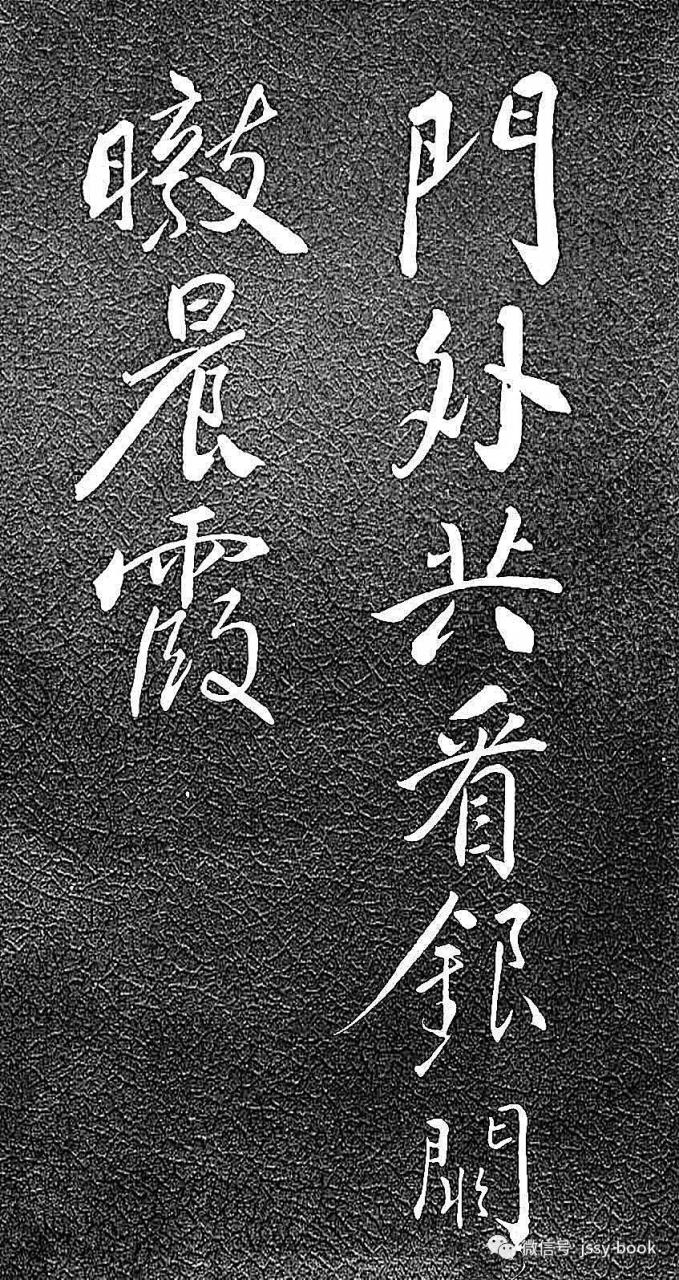 門外共看銀闕
晨霞
微信号: jssy-book